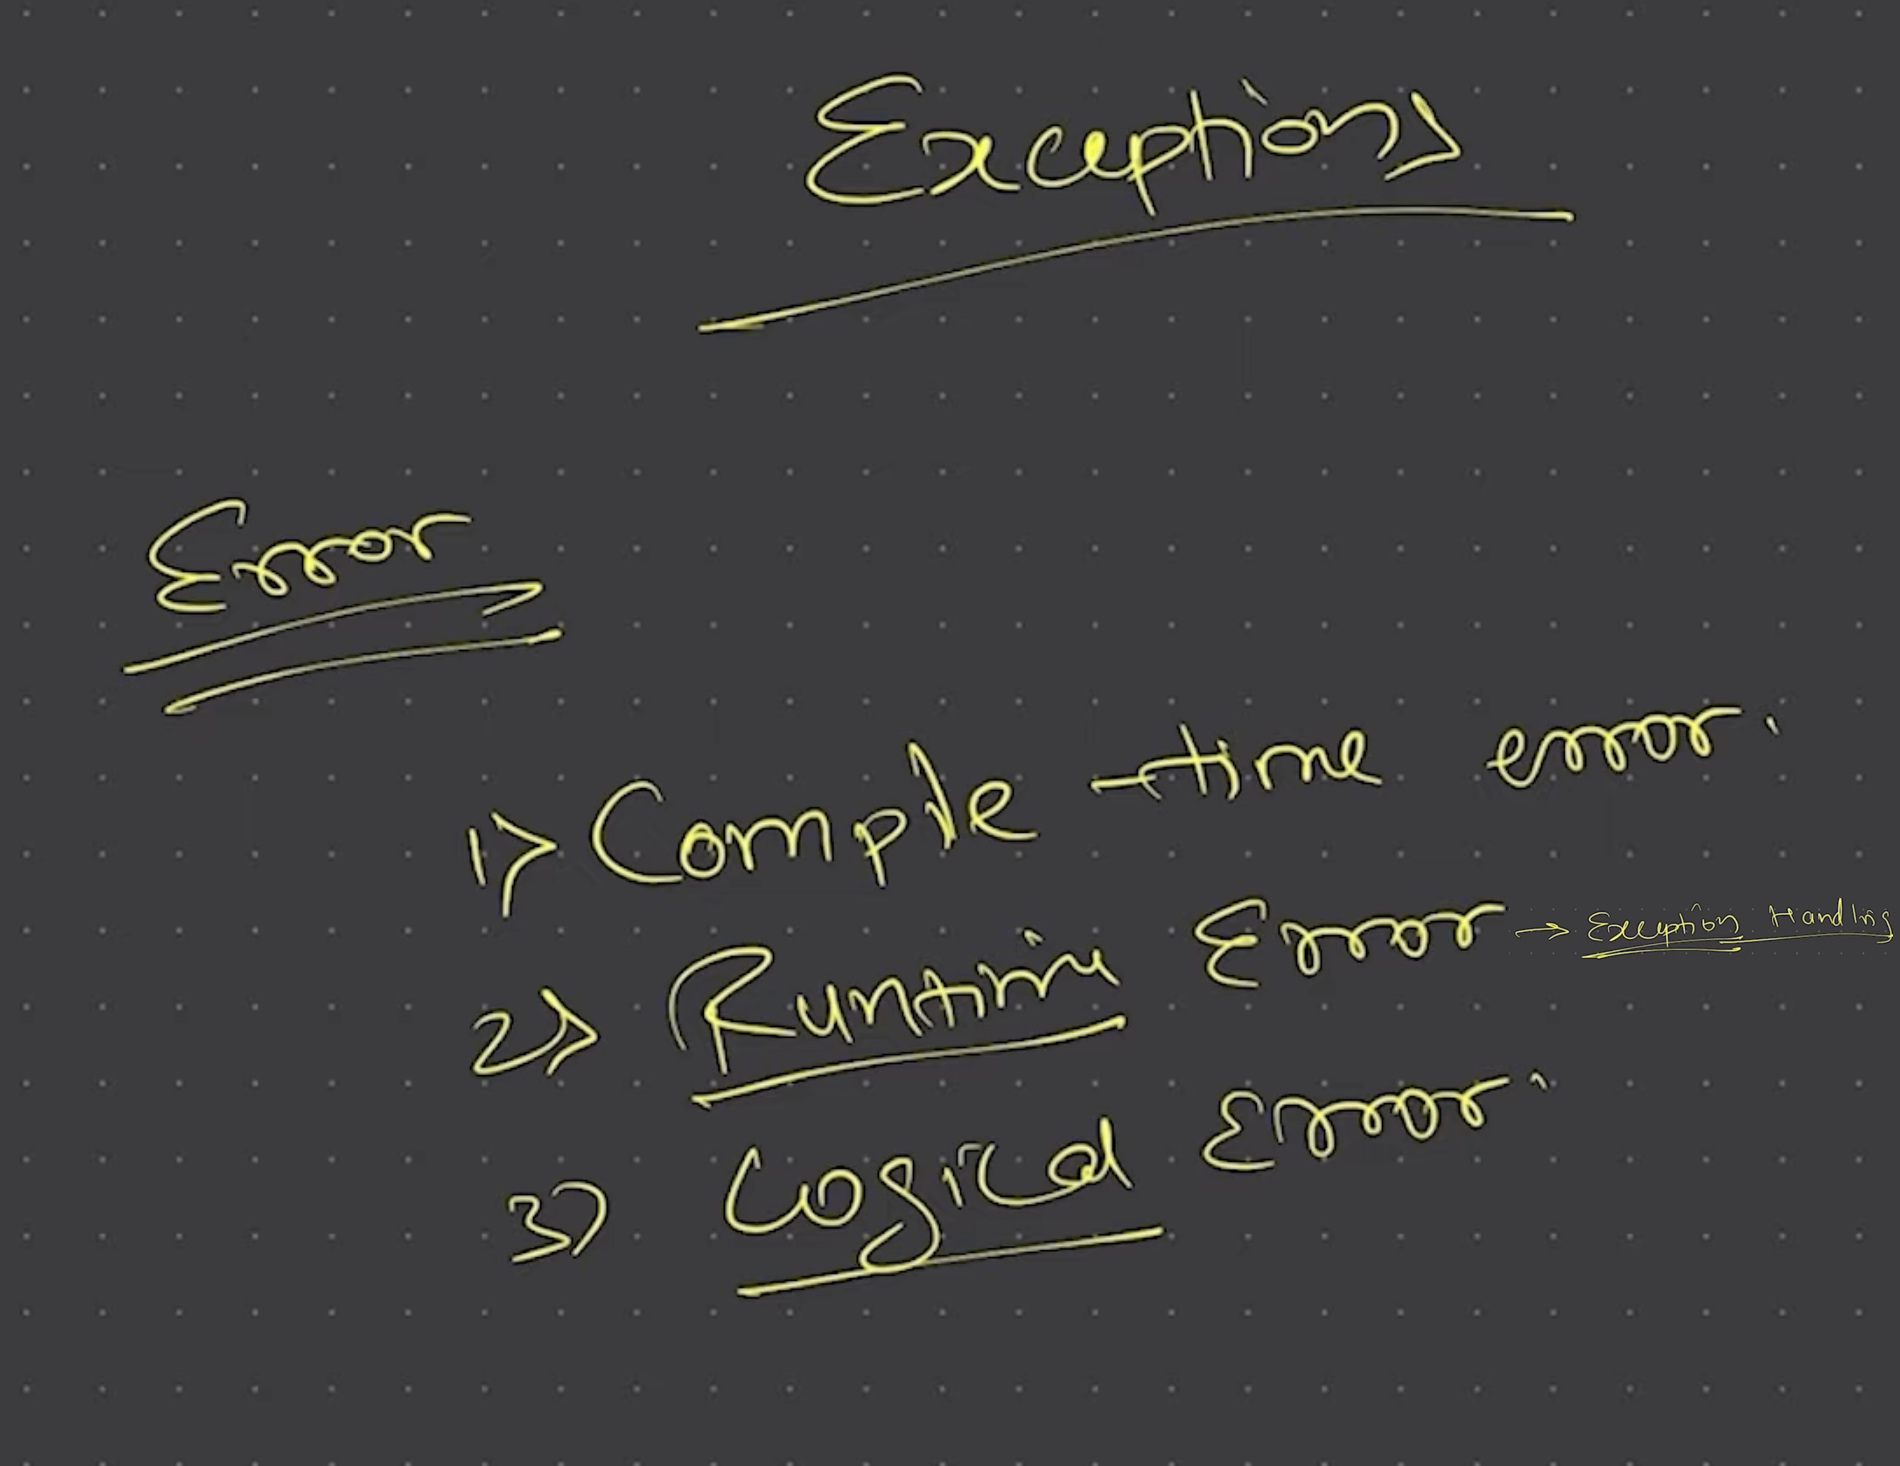 Exceptions
Error
1> Compile-time error.
2> Runtime Error → Exception Handling
3) Logical Error.